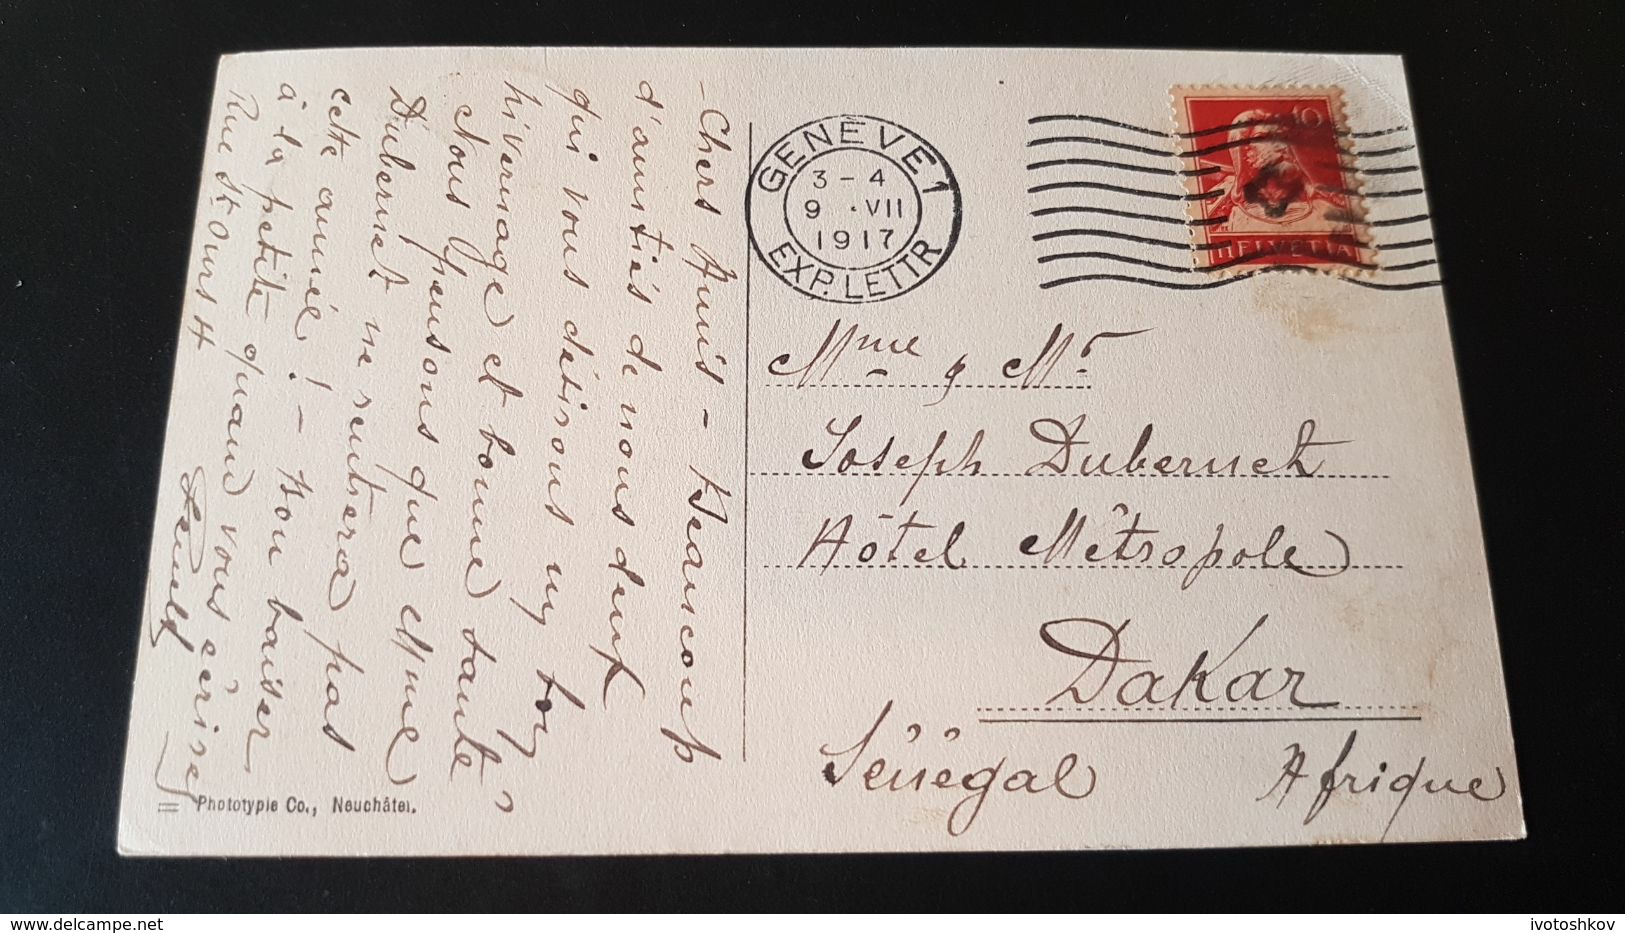 - Chers Amis - Beaucoup
d'amitiés de nous deux
qui vous désirons un bon
hivernage et bonne santé -
Nous pensons que Mme
Dubernet ne rentrera pas
cette année ! - Bon baiser
à la petite quand vous écrirez
Rue St Ours 4
GENÈVE 1
3 - 4
9 . VII
1917
EXP. LETTR
10
HELVETIA
Mme & Mr
Joseph Dubernet
Hôtel Métropole
Dakar
Sénégal Afrique
Phototypie Co., Neuchâtel.
ivotoshkov